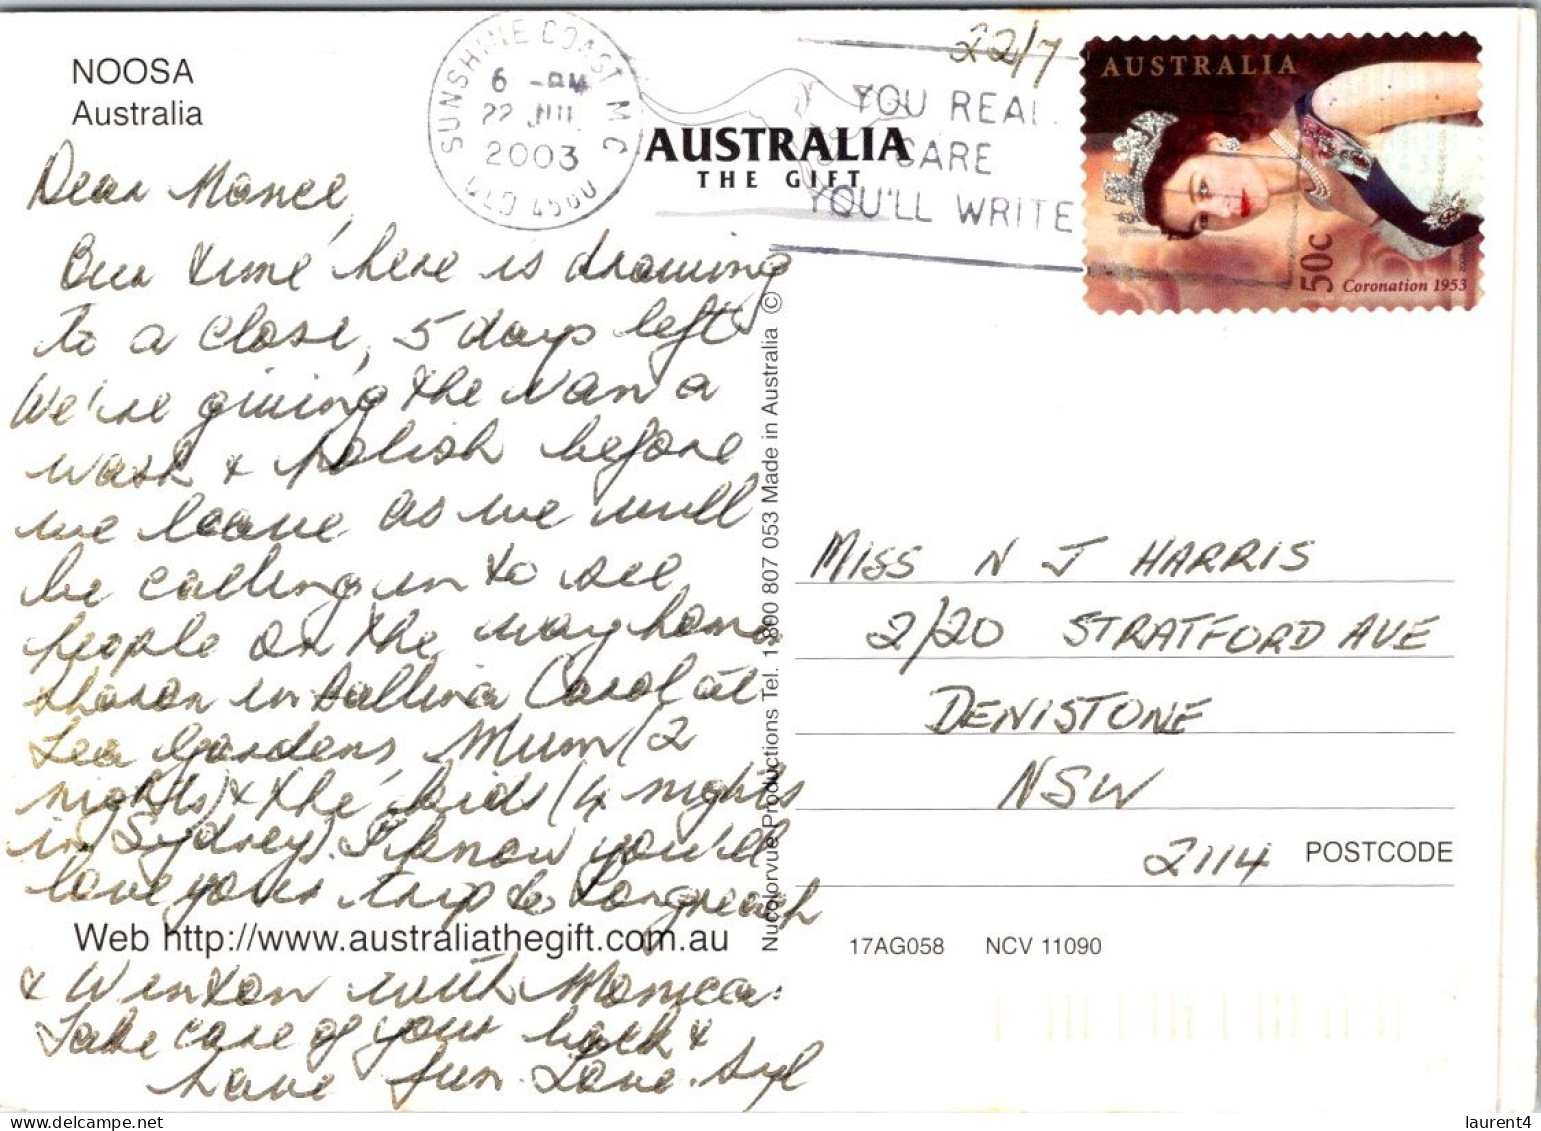 NOOSA
Australia
SUNSHINE COAST M C
6 -PM
22 JUL
2003
QLD 4560
22/7
YOU REAL
CARE
YOU'LL WRITE
AUSTRALIA
THE GIFT
AUSTRALIA
50c
Coronation 1953
Dear Nance,
Our time here is drawing
to a close, 5 days left
We're giving the van a
wash & polish before
we leave as we will
be calling in to see
people on the way home
Sharon in Ballina Carol at
Tea Gardens, Mum (2
nights) & the kids (4 nights
in Sydney). I know you'll
love your trip to Longreach
Web http://www.australiathegift.com.au
& Winton with Monica.
Take care of your back &
have fun. Love. Syl
Nucolorvue Productions Tel. 1 800 807 053 Made in Australia ©
MISS N J HARRIS
2/20 STRATFORD AVE
DENISTONE
NSW
2114 POSTCODE
17AG058 NCV 11090
laurent4